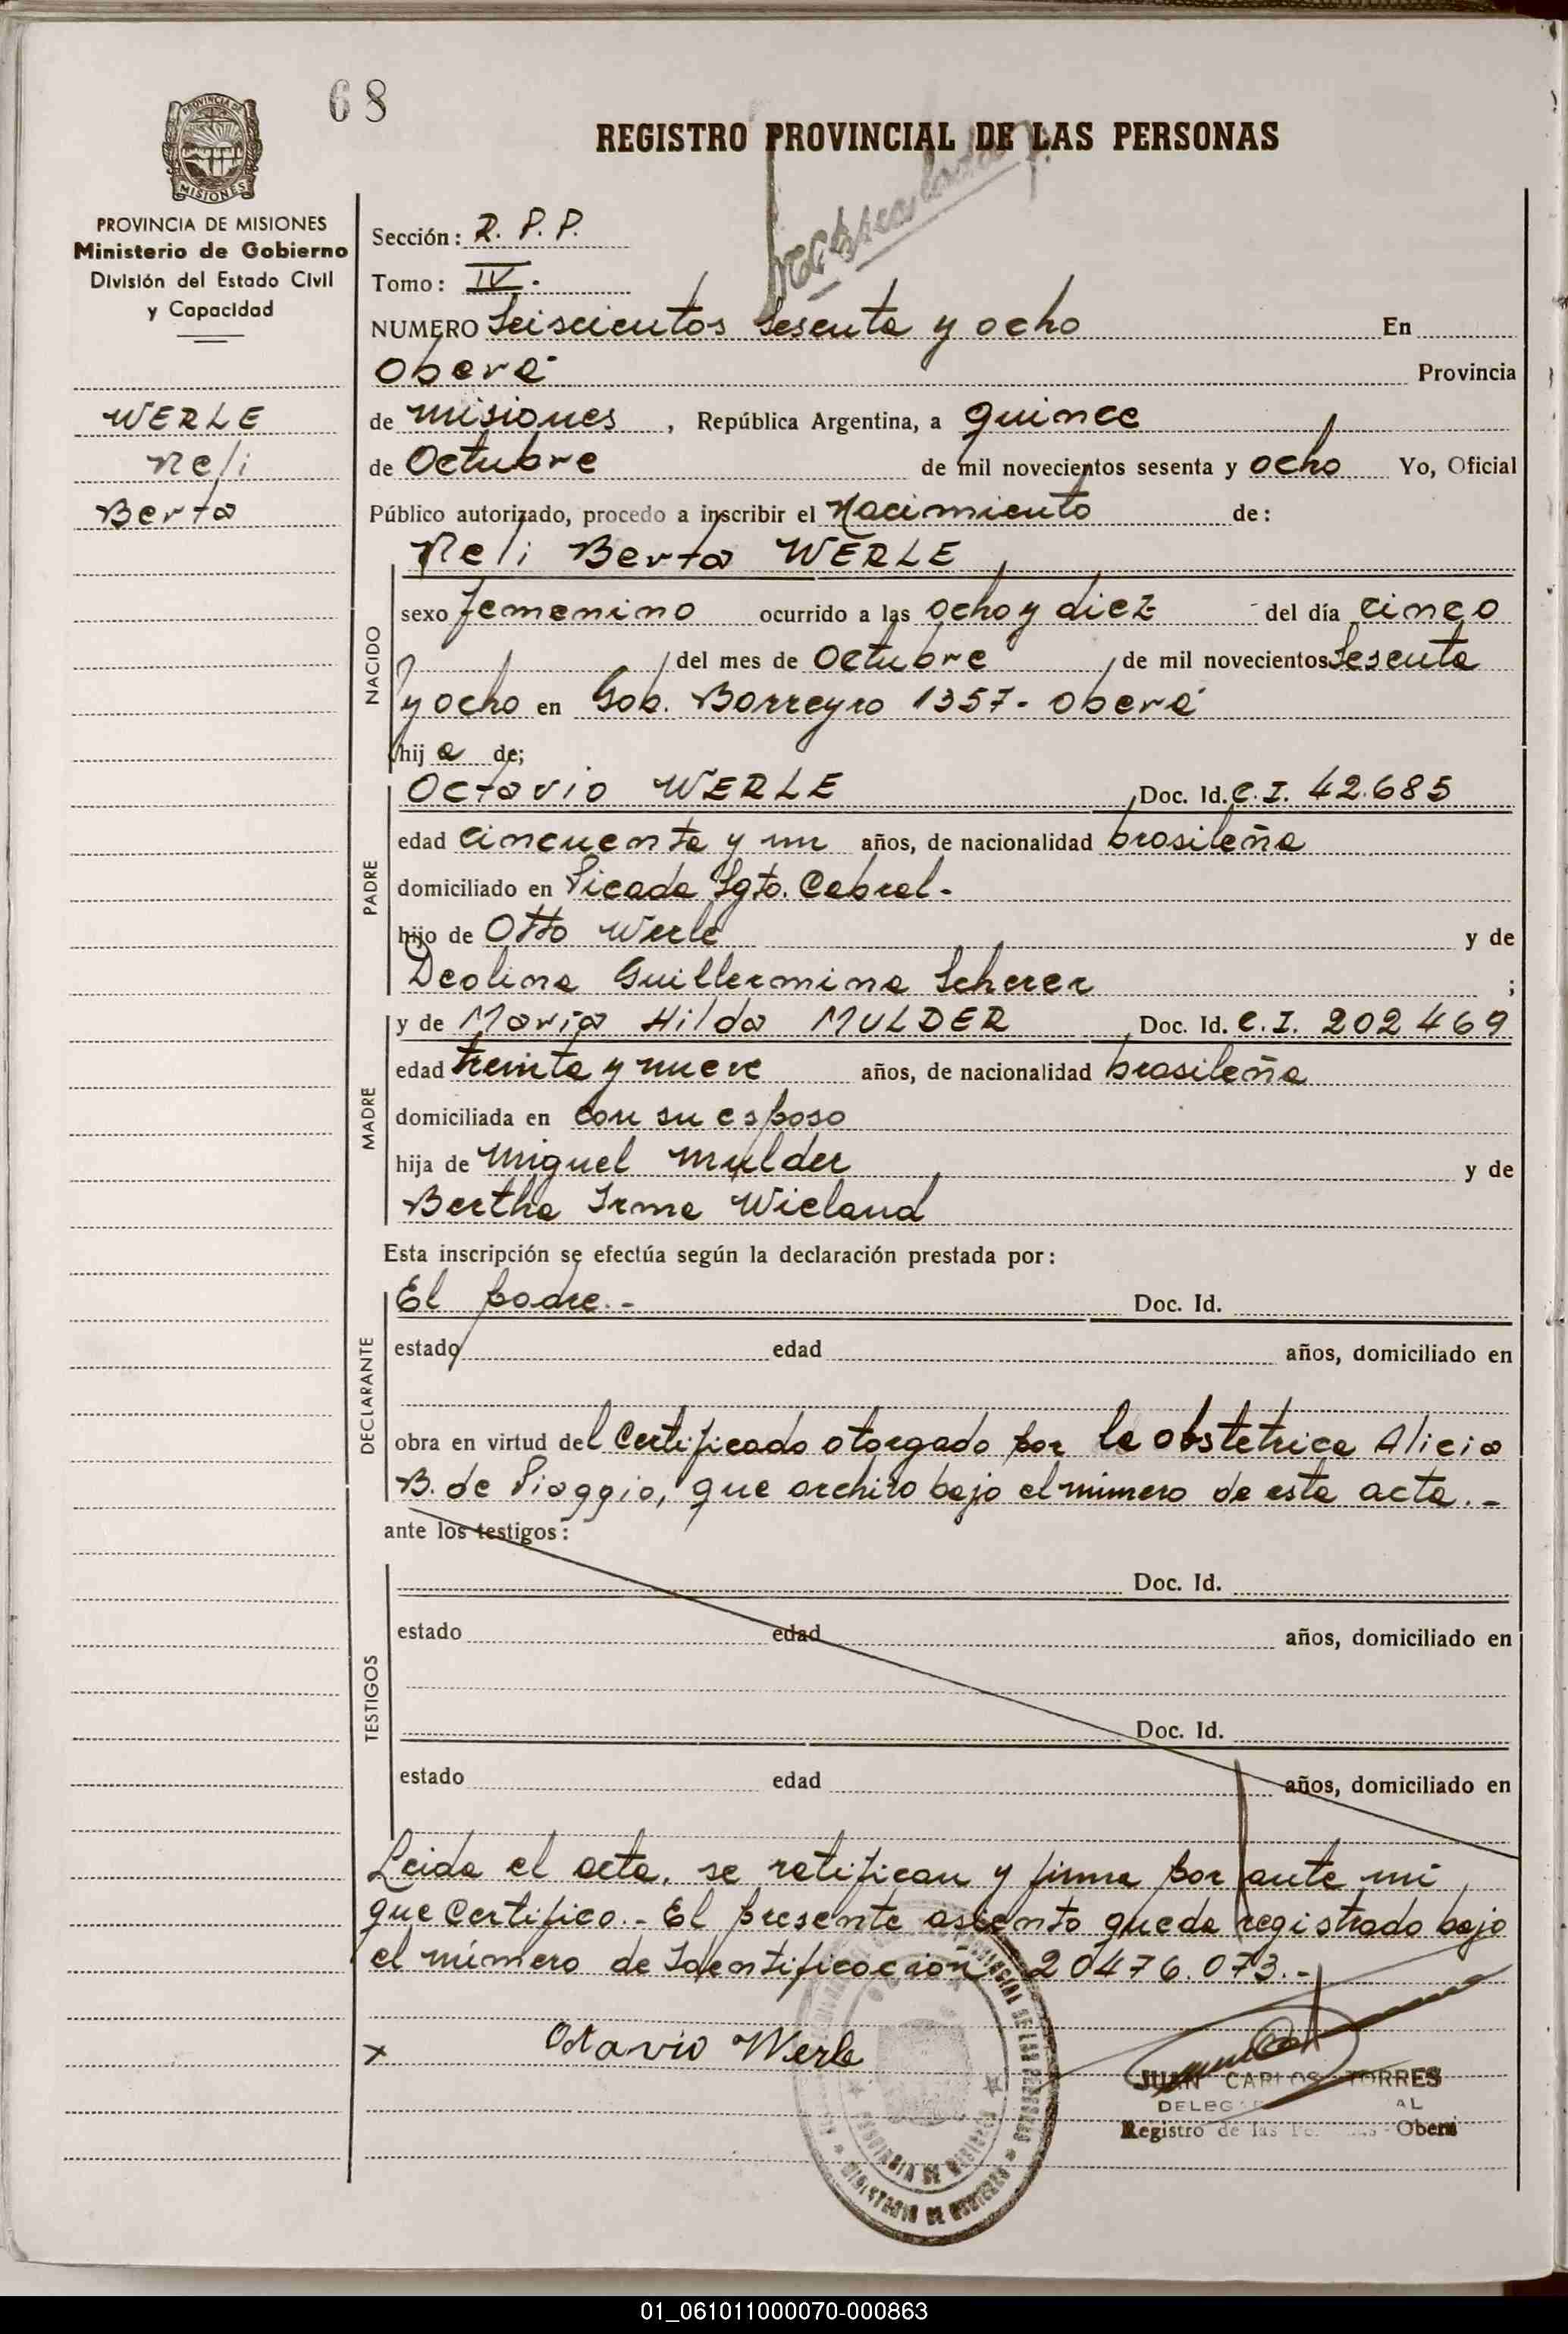 68
PROVINCIA DE
MISIONES
PROVINCIA DE MISIONES
Ministerio de Gobierno
División del Estado Civil
y Capacidad
WERLE
Neli
Berta
REGISTRO PROVINCIAL DE LAS PERSONAS
Sección: R. P. P.
Tomo: IV.
NUMERO Seiscientos Sesenta y ocho En
Oberá Provincia
de Misiones, República Argentina, a quince
de Octubre de mil novecientos sesenta y ocho Yo, Oficial
Público autorizado, procedo a inscribir el Nacimiento de:
Neli Berta WERLE,
NACIDO
sexo femenino ocurrido a las ocho y diez del día cinco
del mes de Octubre, de mil novecientos Sesenta
y ocho en Gob. Barreyro 1357 - Oberá
hija de;
PADRE
Octavio WERLE, Doc. Id. C. I. 42.685
edad cincuenta y un años, de nacionalidad brasileña
domiciliado en Picada Sgto. Cabral.-
hijo de Otto Werle y de
Deolina Guillermina Scherer ;
MADRE
y de María Hilda MULDER, Doc. Id. C. I. 202469
edad treinta y nueve años, de nacionalidad brasileña
domiciliada en con su esposo
hija de Miguel Mulder, y de
Bertha Irma Wieland
Esta inscripción se efectúa según la declaración prestada por:
DECLARANTE
El padre.- Doc. Id.
estado edad años, domiciliado en
obra en virtud del Certificado otorgado por la obstetrica Alicia
B. de Piaggio, que archivo bajo el número de esta acta.-
ante los testigos:
TESTIGOS
Doc. Id.
estado edad años, domiciliado en
Doc. Id.
estado edad años, domiciliado en
Leida el acta, se ratifican y firma por ante mí
que Certifico.- El presente asiento queda registrado bajo
el número de Identificación 20476.073.-
x Octavio Werle
PROVINCIA DE MISIONES
MINISTERIO DE GOBIERNO
JUAN CARLOS TORRES
Registro de las - Oberá
01_061011000070-000863